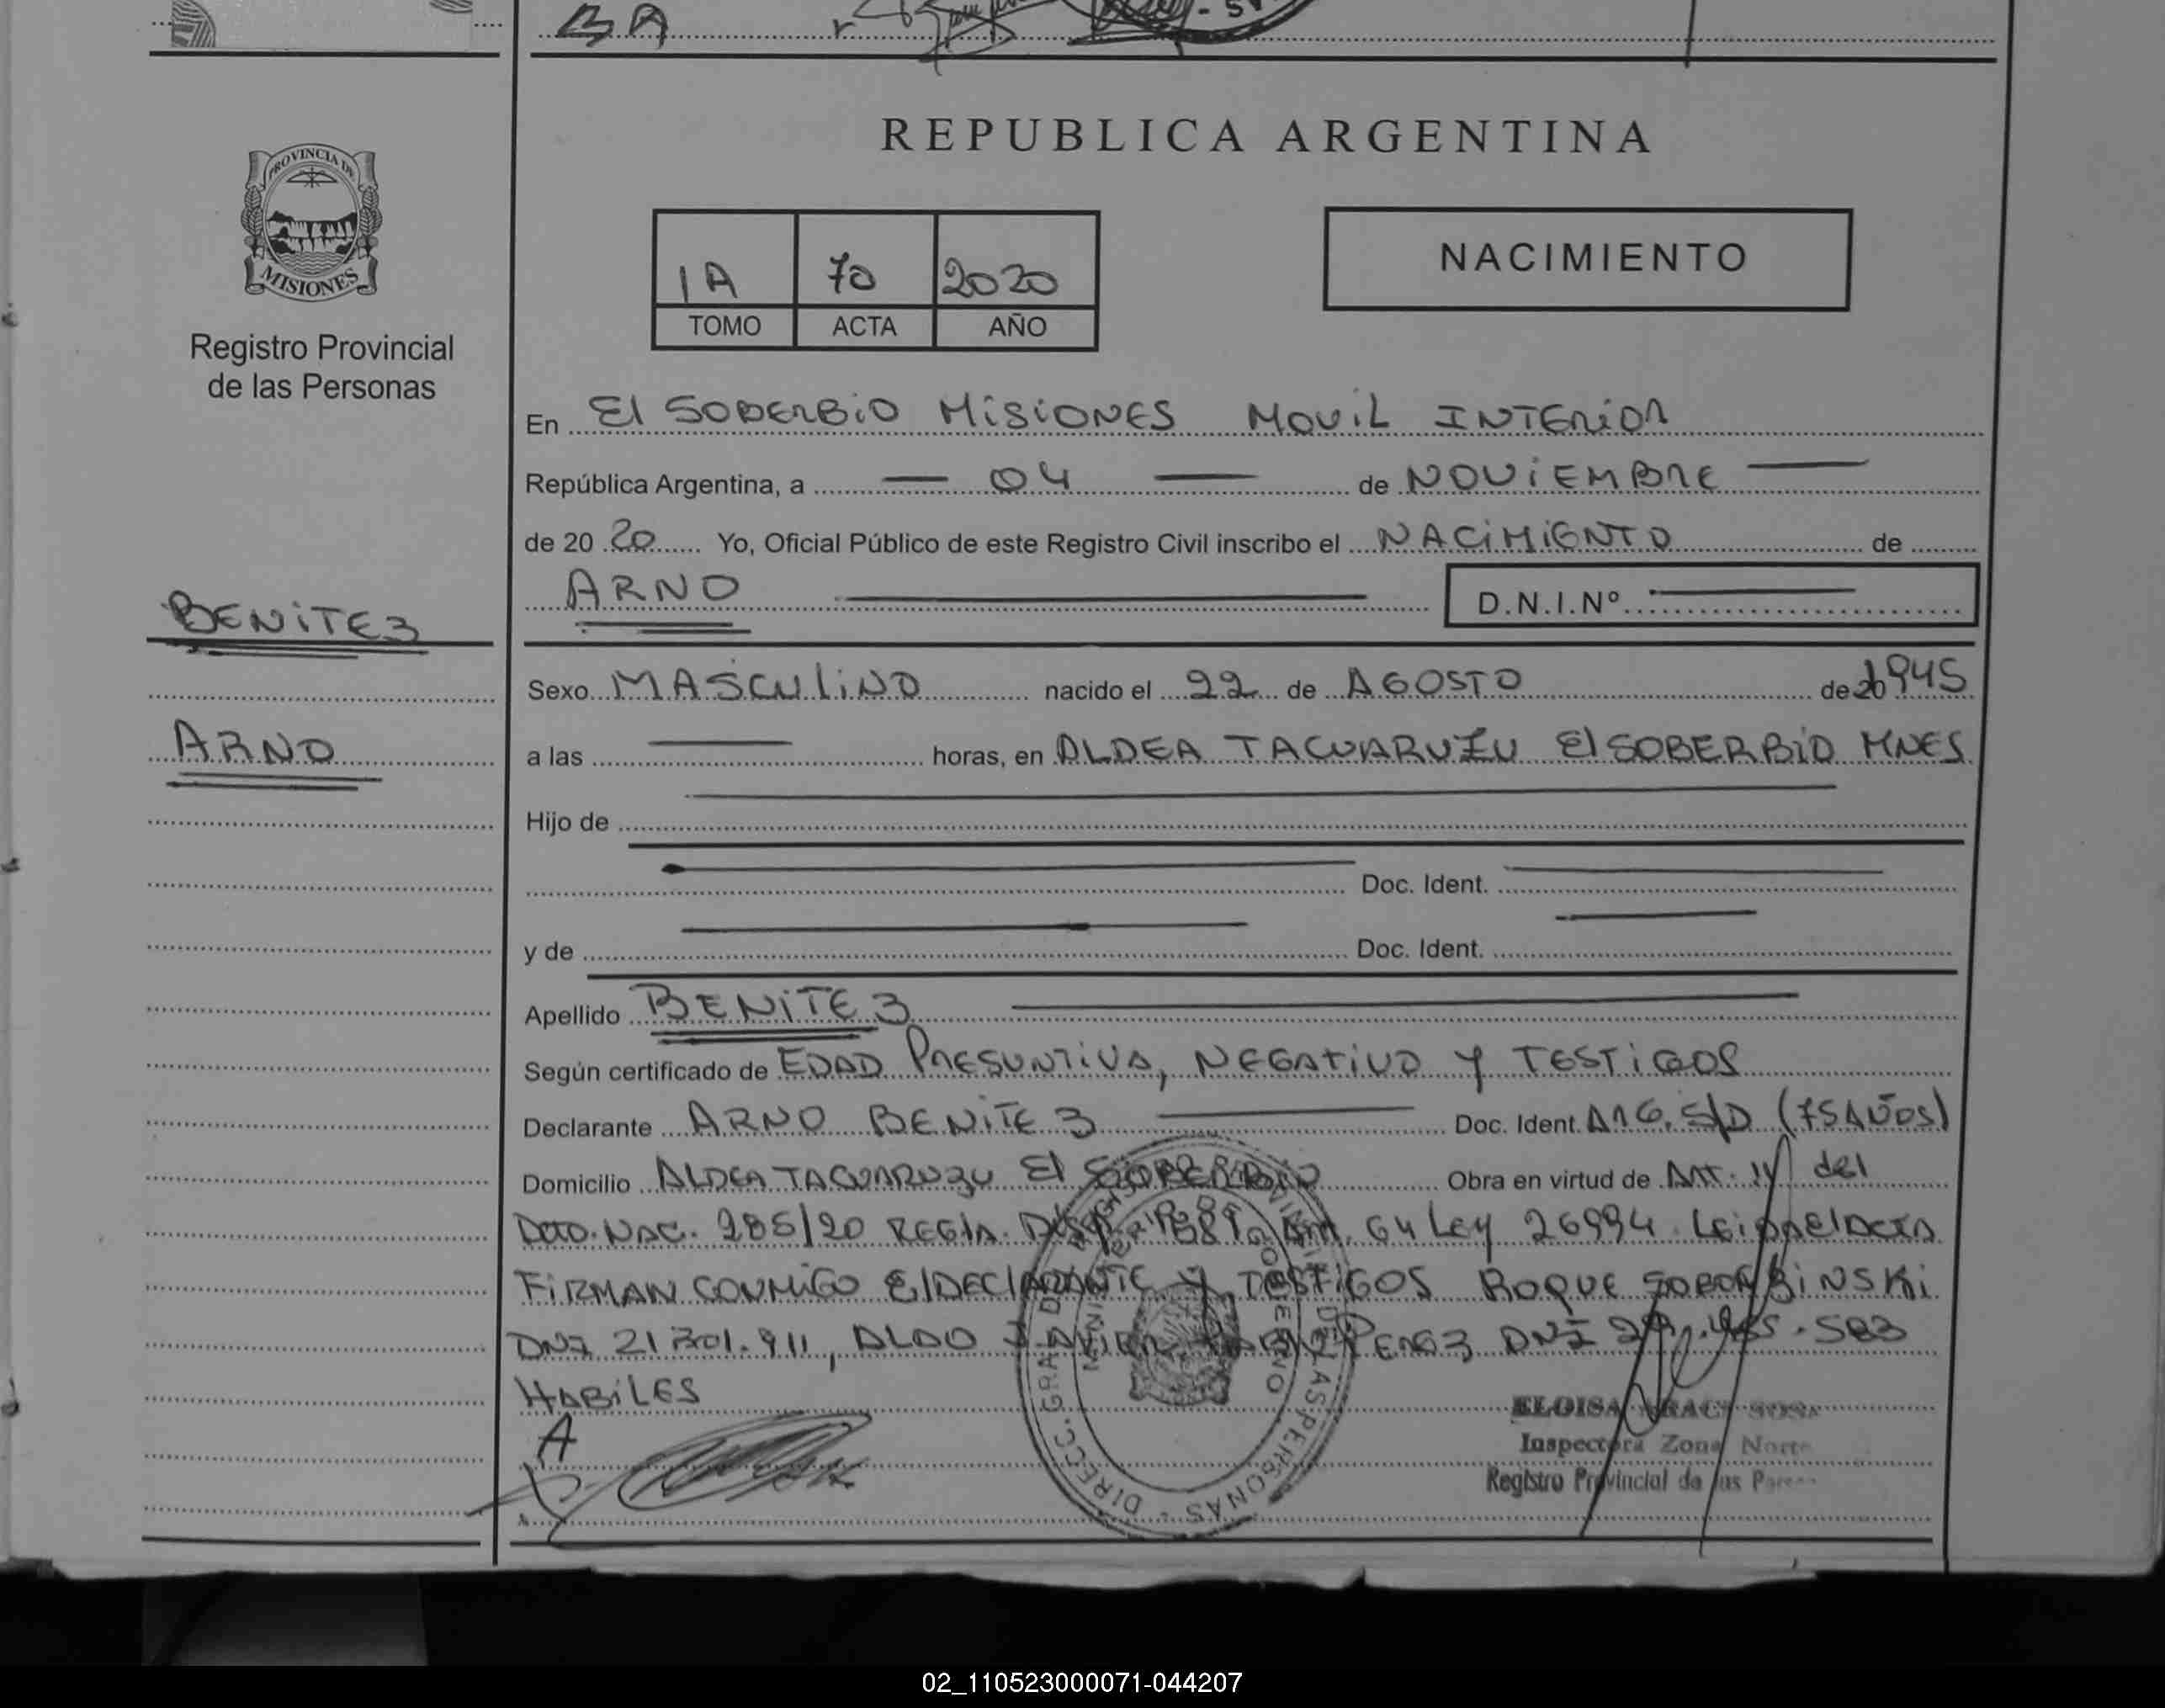 BA
PROVINCIA DE
MISIONES
Registro Provincial
de las Personas
BENITEZ
ARNO
REPUBLICA ARGENTINA
1A 70 2020
TOMO ACTA AÑO
NACIMIENTO
En El SOBERBIO MISIONES MOVIL INTERIOR
República Argentina, a 04 de NOVIEMBRE
de 20 20 Yo, Oficial Público de este Registro Civil inscribo el NACIMIENTO de
ARNO D.N.I.Nº
Sexo MASCULINO nacido el 22 de AGOSTO de 1945
a las horas, en ALDEA TACUARUZU El SOBERBIO MNES
Hijo de
Doc. Ident.
y de Doc. Ident.
Apellido BENITEZ
Según certificado de EDAD PRESUNTIVA, NEGATIVO Y TESTIGOS
Declarante ARNO BENITEZ Doc. Ident. ARG. S/D (75 AÑOS)
Domicilio ALDEA TACUARUZU El SOBERBIO Obra en virtud de Art. 11 del
Dcto. NAC. 285/20 REGLA. Art. 64 Ley 26994 Leida el Acta
FIRMAN CONMIGO El DECLARANTE Y TESTIGOS ROQUE
DNI 21 701.911, ALDO JAVIER DNI 583
HABILES
A
DIRECC. GRAL. DE LAS PERSONAS
MINISTERIO GOBIERNO
ELOISA ARACY SOSA
Inspectora Zona Norte
Registro Provincial de las Personas
02_110523000071-044207